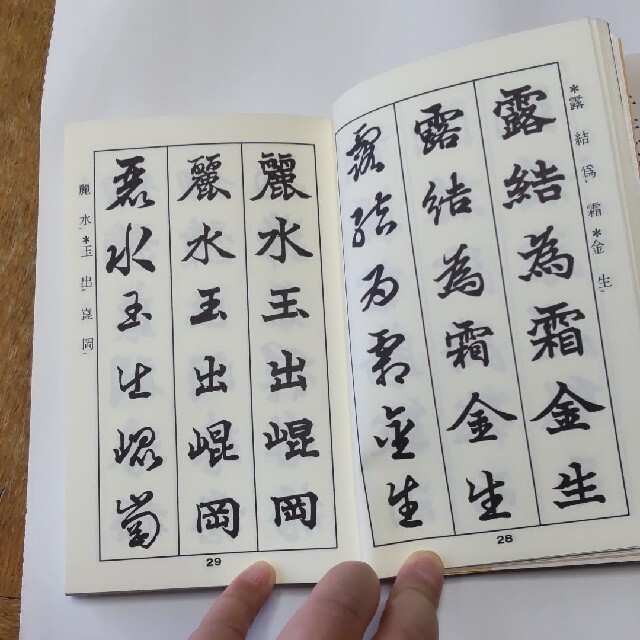 *露結為霜*金生
露結為霜金生
露結為霜金生
露結為霜金生
28
麗水王出崐岡
麗水玉出崐岡
麗水玉出崐岡
麗水*玉出崑岡
29